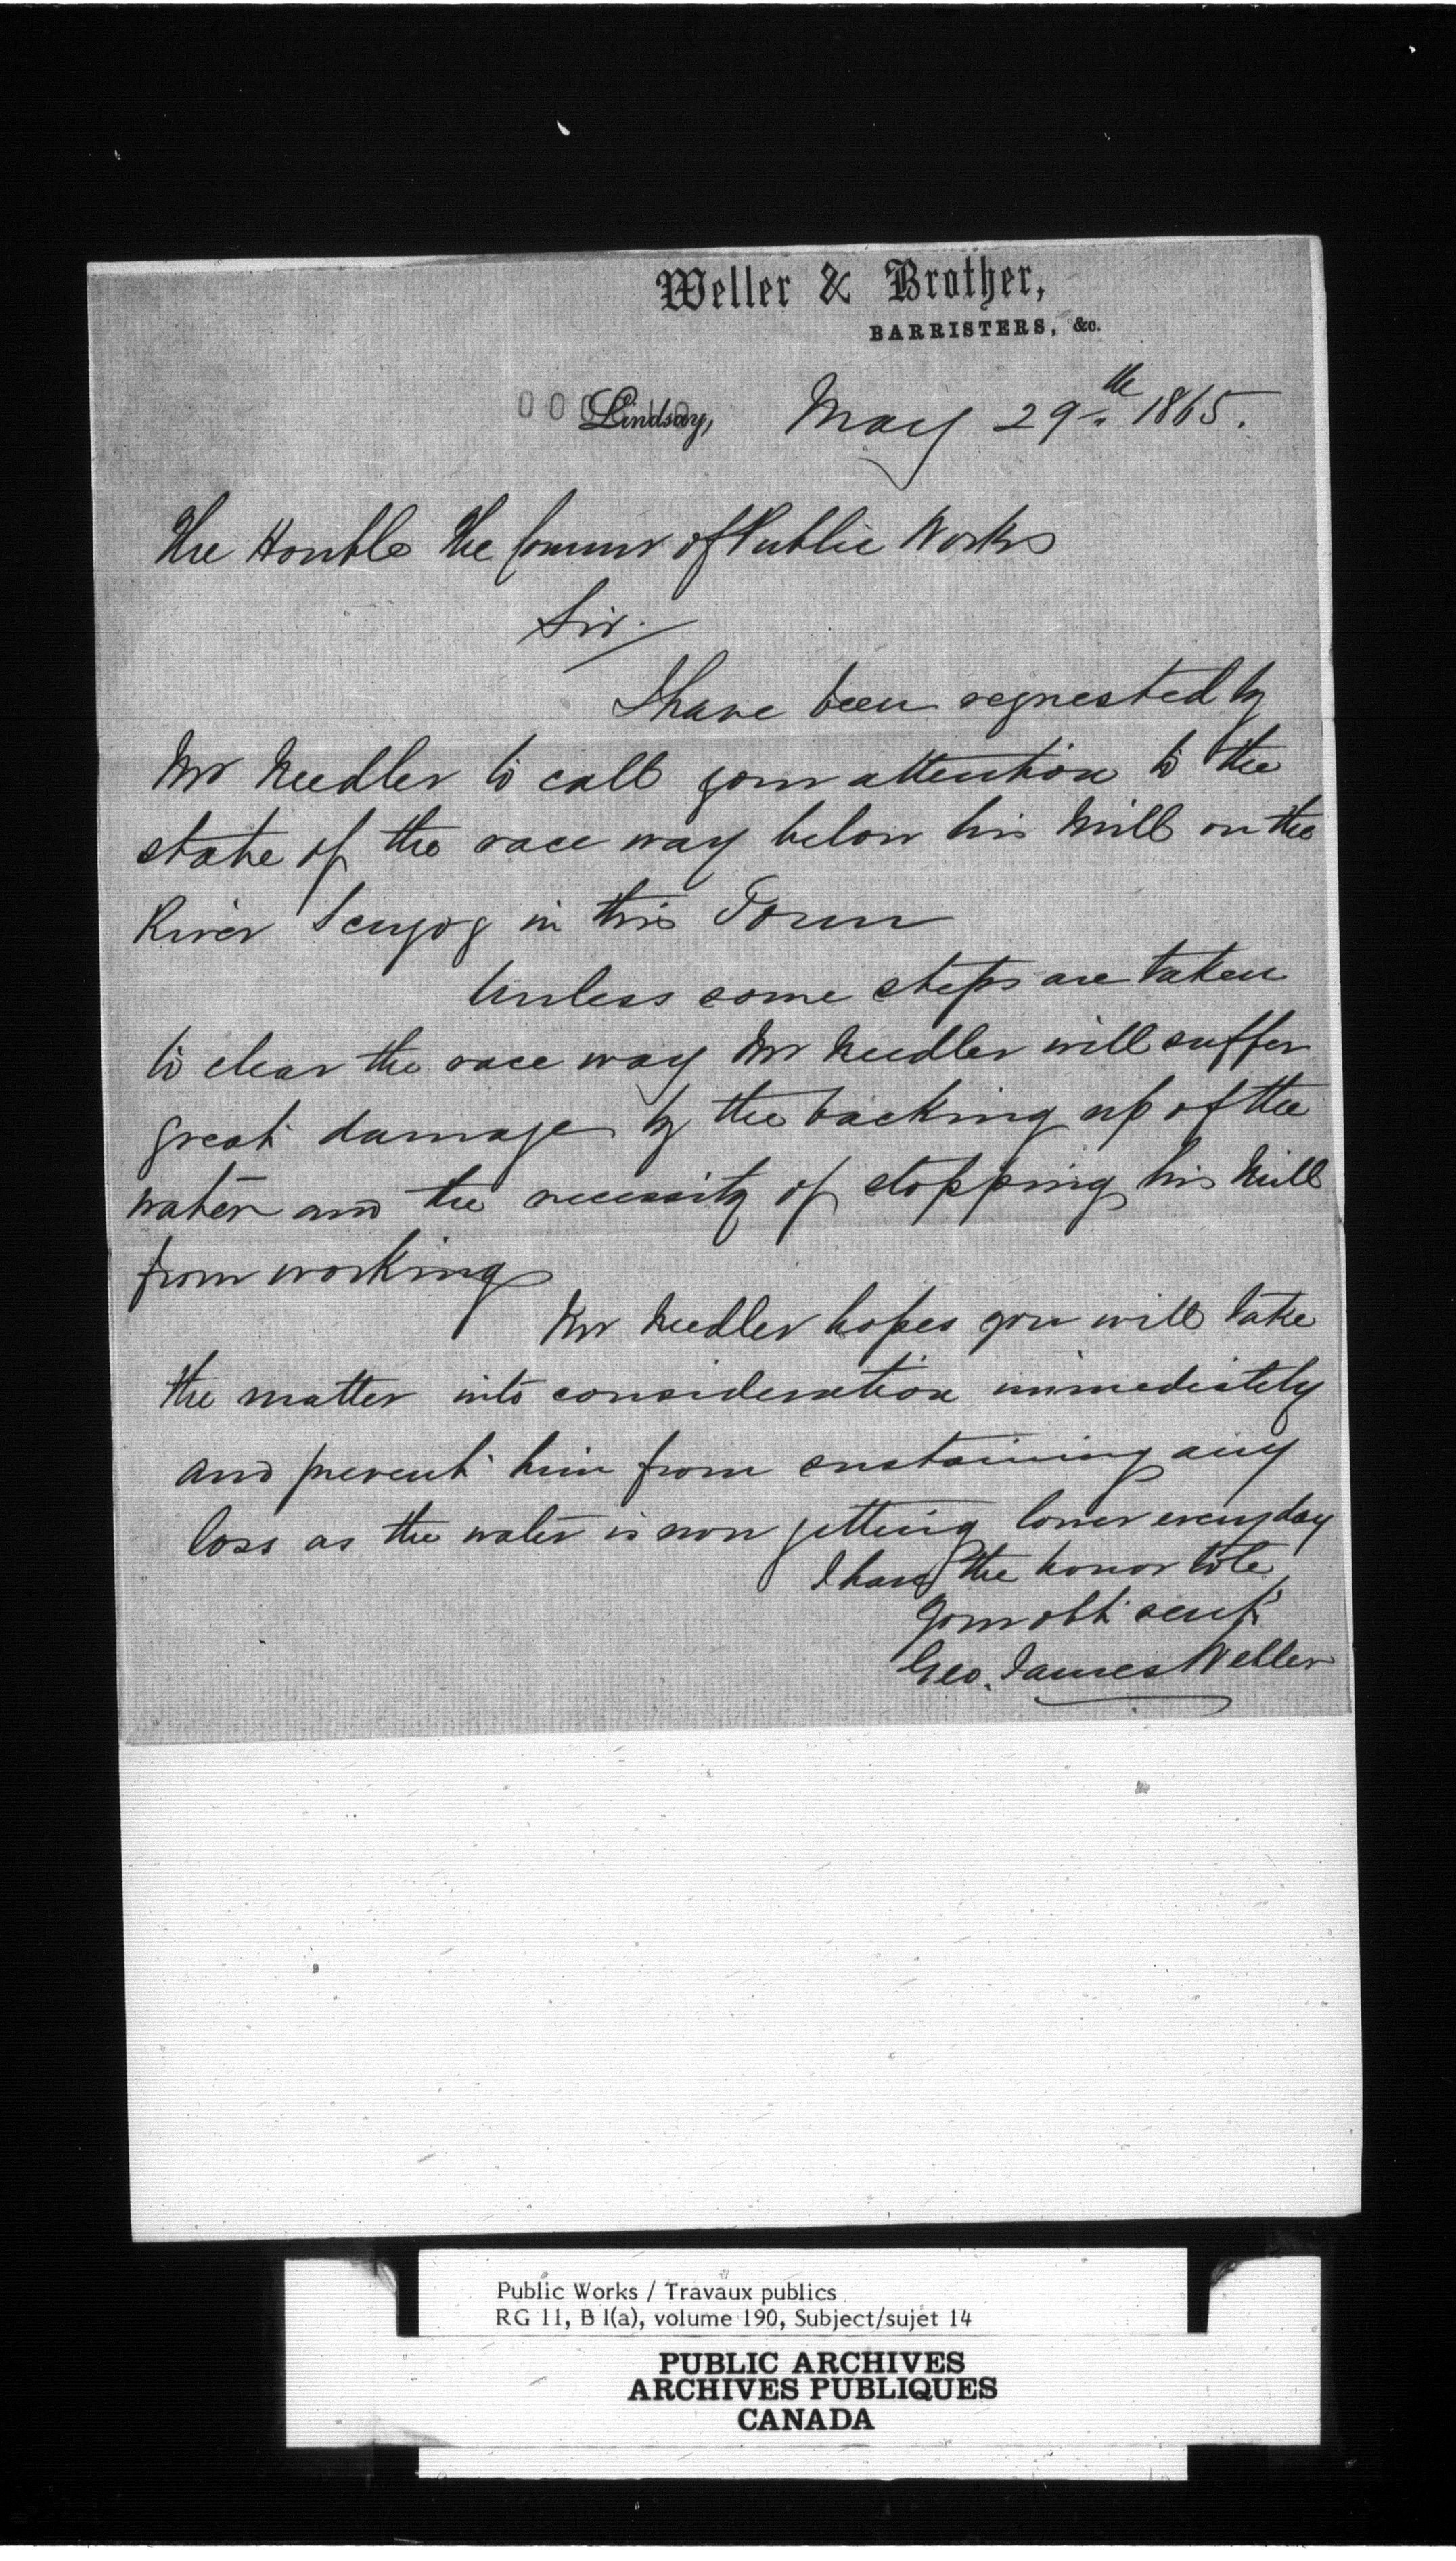 Weller & Brother,
BARRISTERS, &c.
Lindsay, May 29th 1865.
The Honble The Commr of Public Works
Sir.
I have been requested by
Mr Needler to call your attention to the
state of the race way below his Mill on the
River Scugog in this Town
Unless some steps are taken
to clear the race way Mr Needler will suffer
great damage by the backing up of the
water and the necessity of stopping his Mill
from working
Mr Needler hopes you will take
the matter into consideration immediately
and prevent him from sustaining any
loss as the water is now getting lower every day
I have the honor to be
Your obt servt
Geo. James Weller
Public Works / Travaux publics
RG 11, B 1(a), volume 190, Subject/sujet 14
PUBLIC ARCHIVES
ARCHIVES PUBLIQUES
CANADA